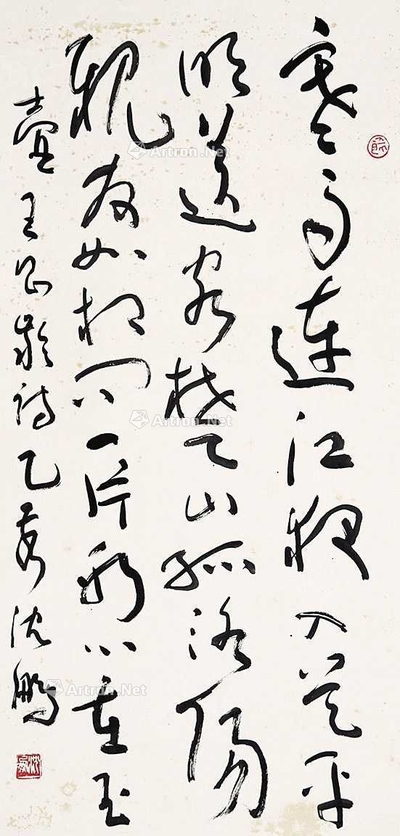 寒雨連江夜入吳平
明送客楚山孤洛陽
親友如相問一片冰心在玉
壺王昌齡詩乙亥沈鵬
Artron.Net
Artron.Net
Artron.Net